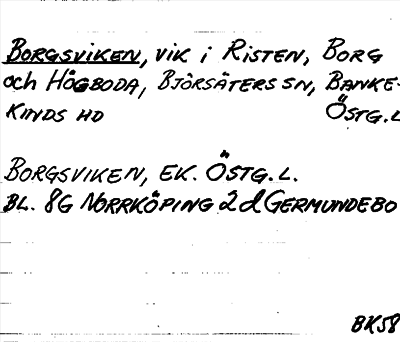 BORGSVIKEN, VIK i RISTEN, BORG
och HÖGBODA, BJÖRSÄTERS SN, BANKE-
KINDS HD ÖSTG.L
BORGSVIKEN, EK. ÖSTG.L.
BL. 8G NORRKÖPING 2d GERMUNDEBO
BK58